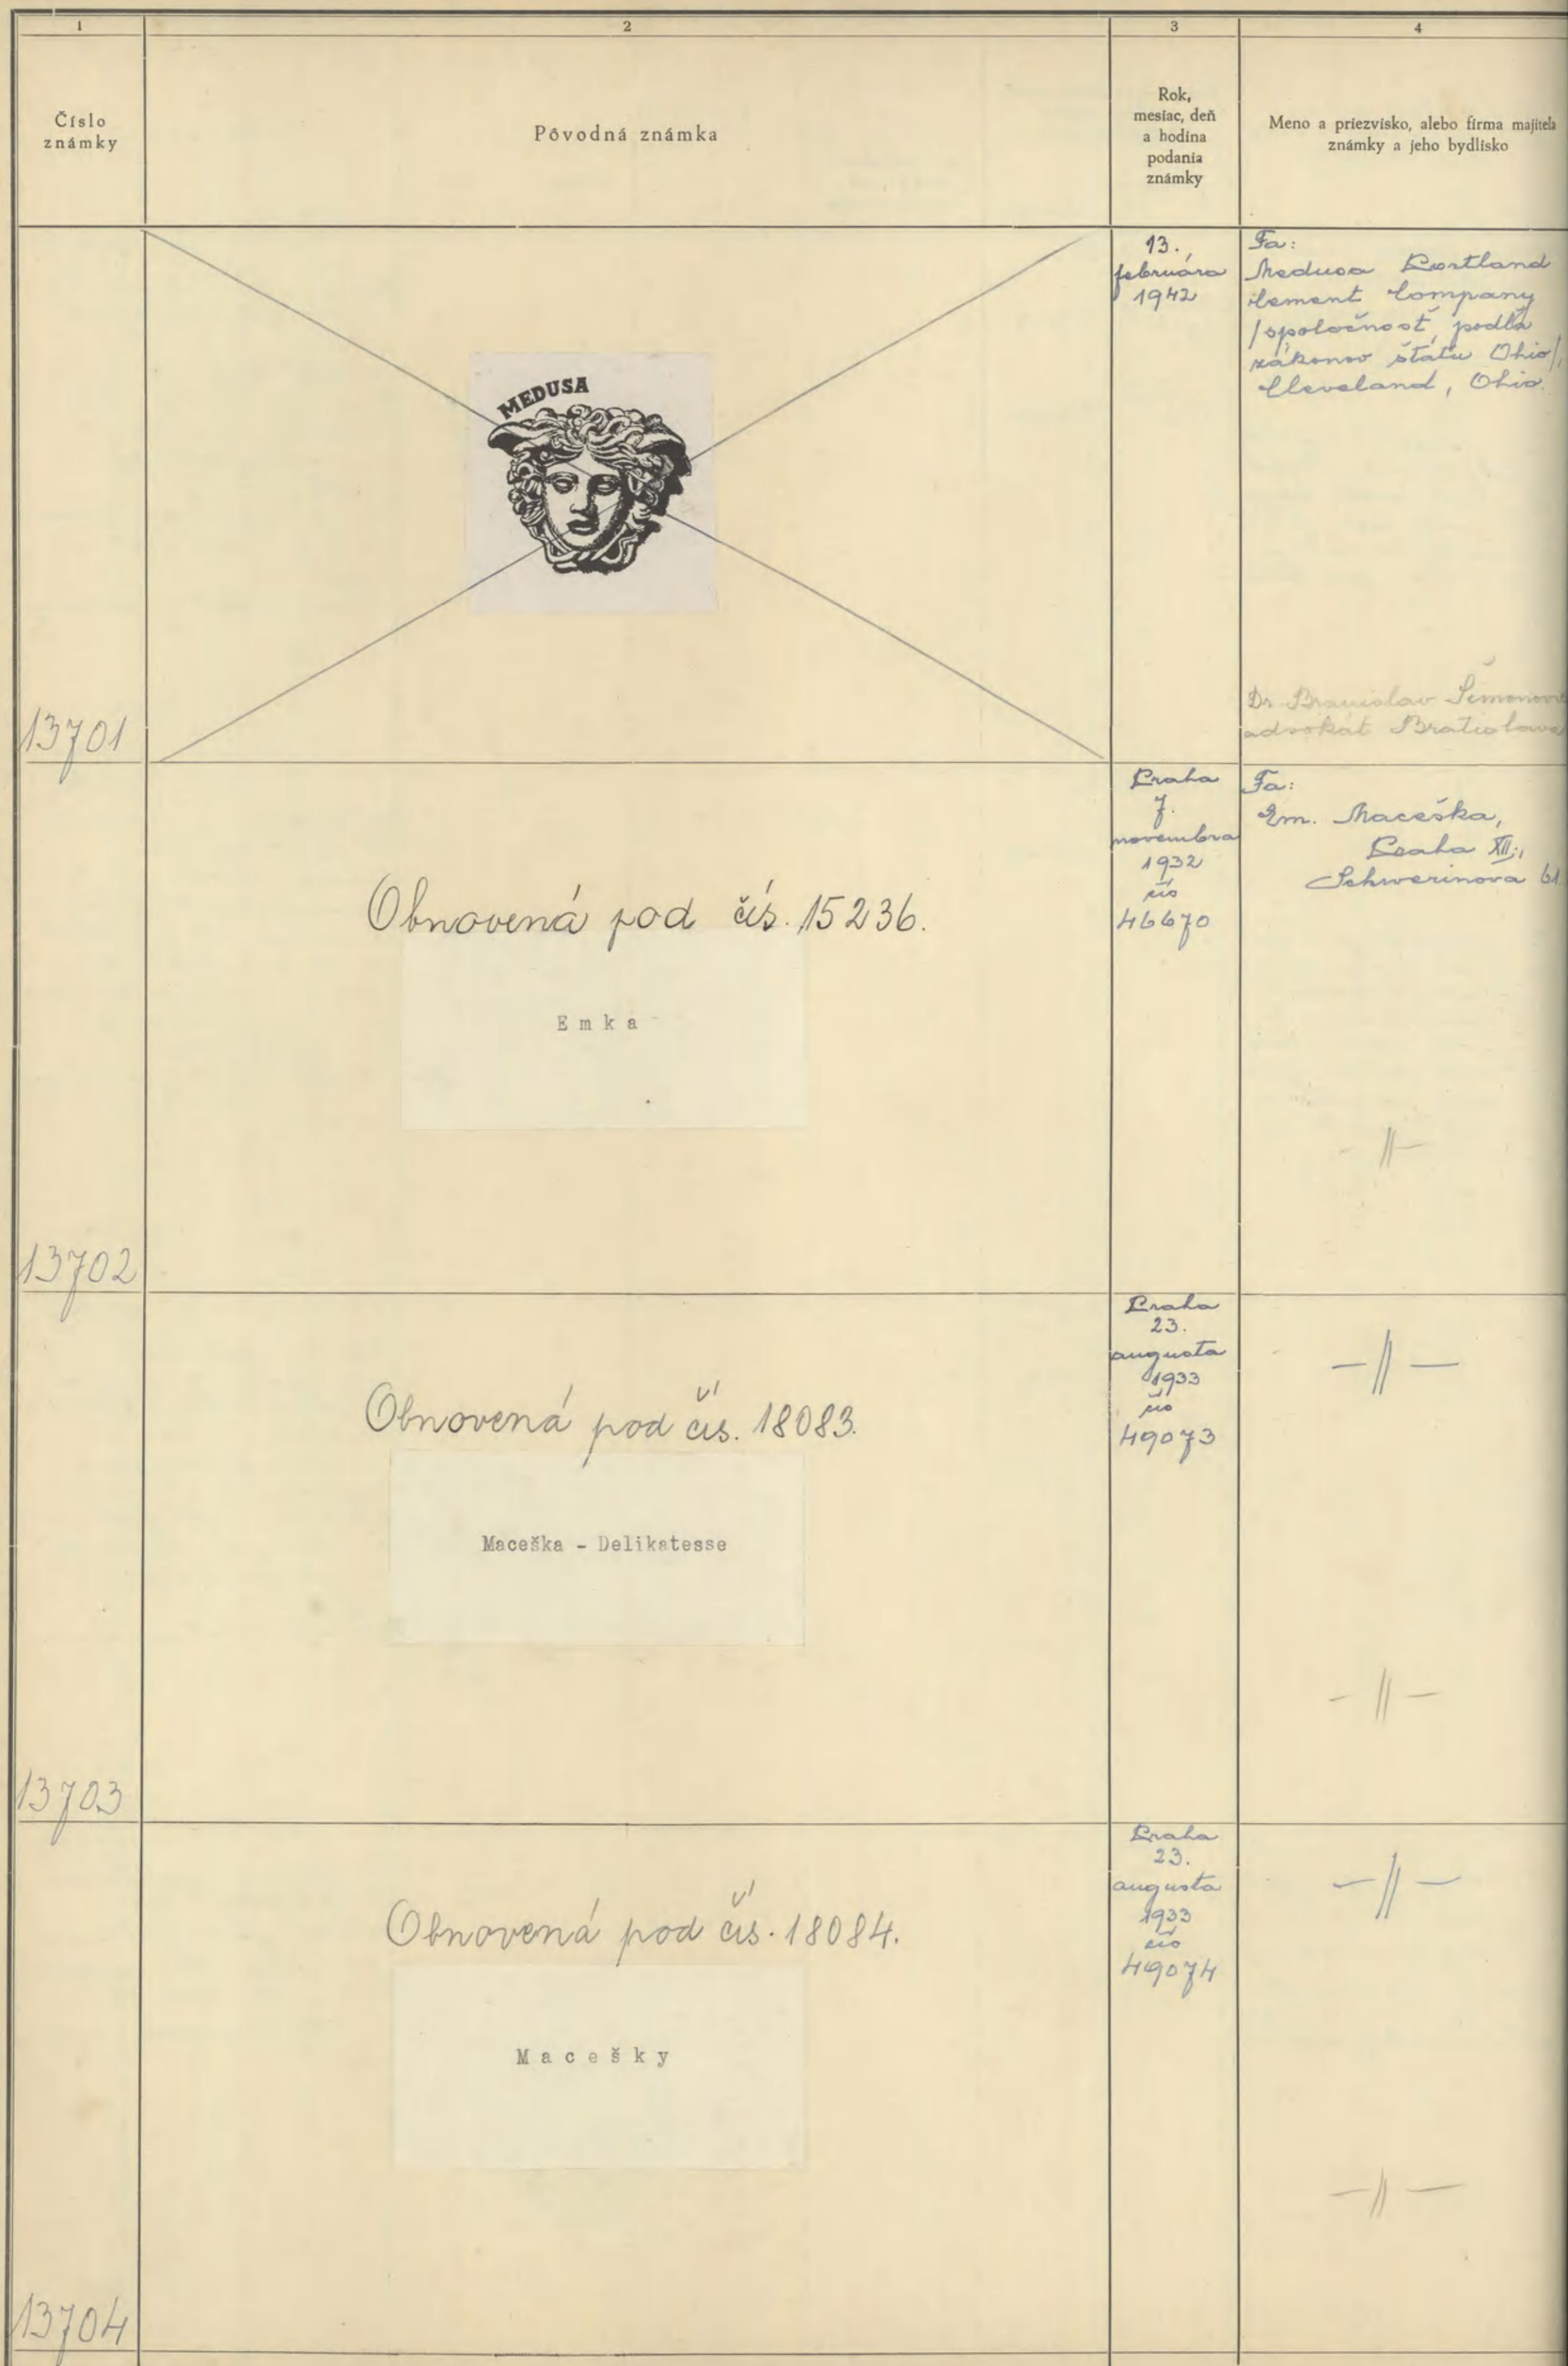 1
2
3
4
Číslo
známky
Pôvodná známka
Rok,
mesiac, deň
a hodina
podania
známky
Meno a priezvisko, alebo firma majiteľa
známky a jeho bydlisko
13701
MEDUSA
13.
februára
1942
Fa:
Medusa Portland
Cement Company
/spoločnosť podľa
zákonov štátu Ohio/,
Cleveland, Ohio.
Dr Branislav
advokát Bratislava
13702
Obnovená pod čís. 15236.
Emka
Praha
7.
novembra
1932
čís
46670
Fa:
Em. Maceška,
Praha XII.,
Schwerinova 61
-〃-
13703
Obnovená pod čís. 18083.
Maceška - Delikatesse
Praha
23.
augusta
1933
čís
49073
-〃-
-〃-
13704
Obnovená pod čís. 18084.
Macešky
Praha
23.
augusta
1933
čís
49074
-〃-
-〃-